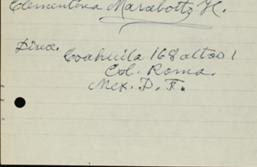 Clementina Marabotto H.
Direc.
Coahuila 168 altos 1
Col. Roma.
Mex. D. F.